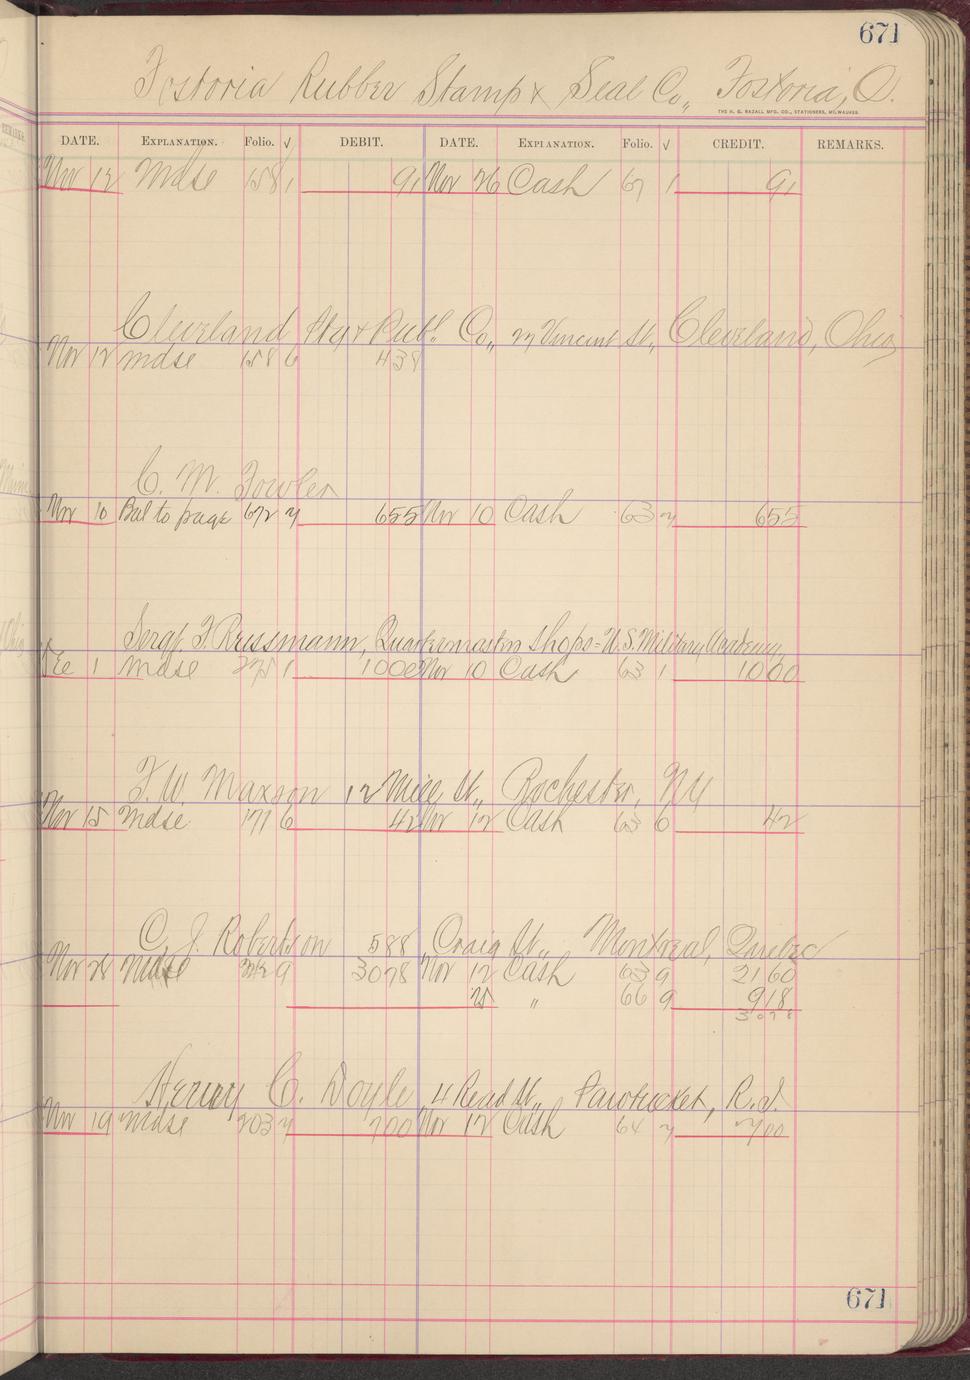 671
Fostoria Rubber Stamp & Seal Co., Fostoria, O.
THE H. G. RAZALL MFG. CO., STATIONERS, MILWAUKEE.
DATE. EXPLANATION. Folio. √ DEBIT. DATE. EXPLANATION. Folio. √ CREDIT. REMARKS.
Nov 12 Mdse 158 1 91 Nov 26 Cash 67 1 91
Cleveland Ptg & Publ. Co., 27 Vincent St., Cleveland, Ohio
Nov 12 Mdse 158 6 438
C. M. Fowler
Nov 10 Bal to page 672 7 655 Nov 10 Cash 63 7 655
F. Reissmann, Quartermasters Shops = U.S. Military Academy,
Dec 1 Mdse 1 1000 Nov 10 Cash 63 1 1000
F. W. Maxson 12 Mill St., Rochester, NY
Nov 15 Mdse 171 6 42 Nov 12 Cash 63 6 42
C. J. Robertson 588 Craig St., Montreal, Quebec
Nov 28 Mdse 9 3078 Nov 12 Cash 63 9 2160
25 " 66 9 918
3078
Henry C. Doyle 4 Read St., Pawtucket, R.I.
Nov 19 Mdse 203 7 700 Nov 12 Cash 64 7 700
671